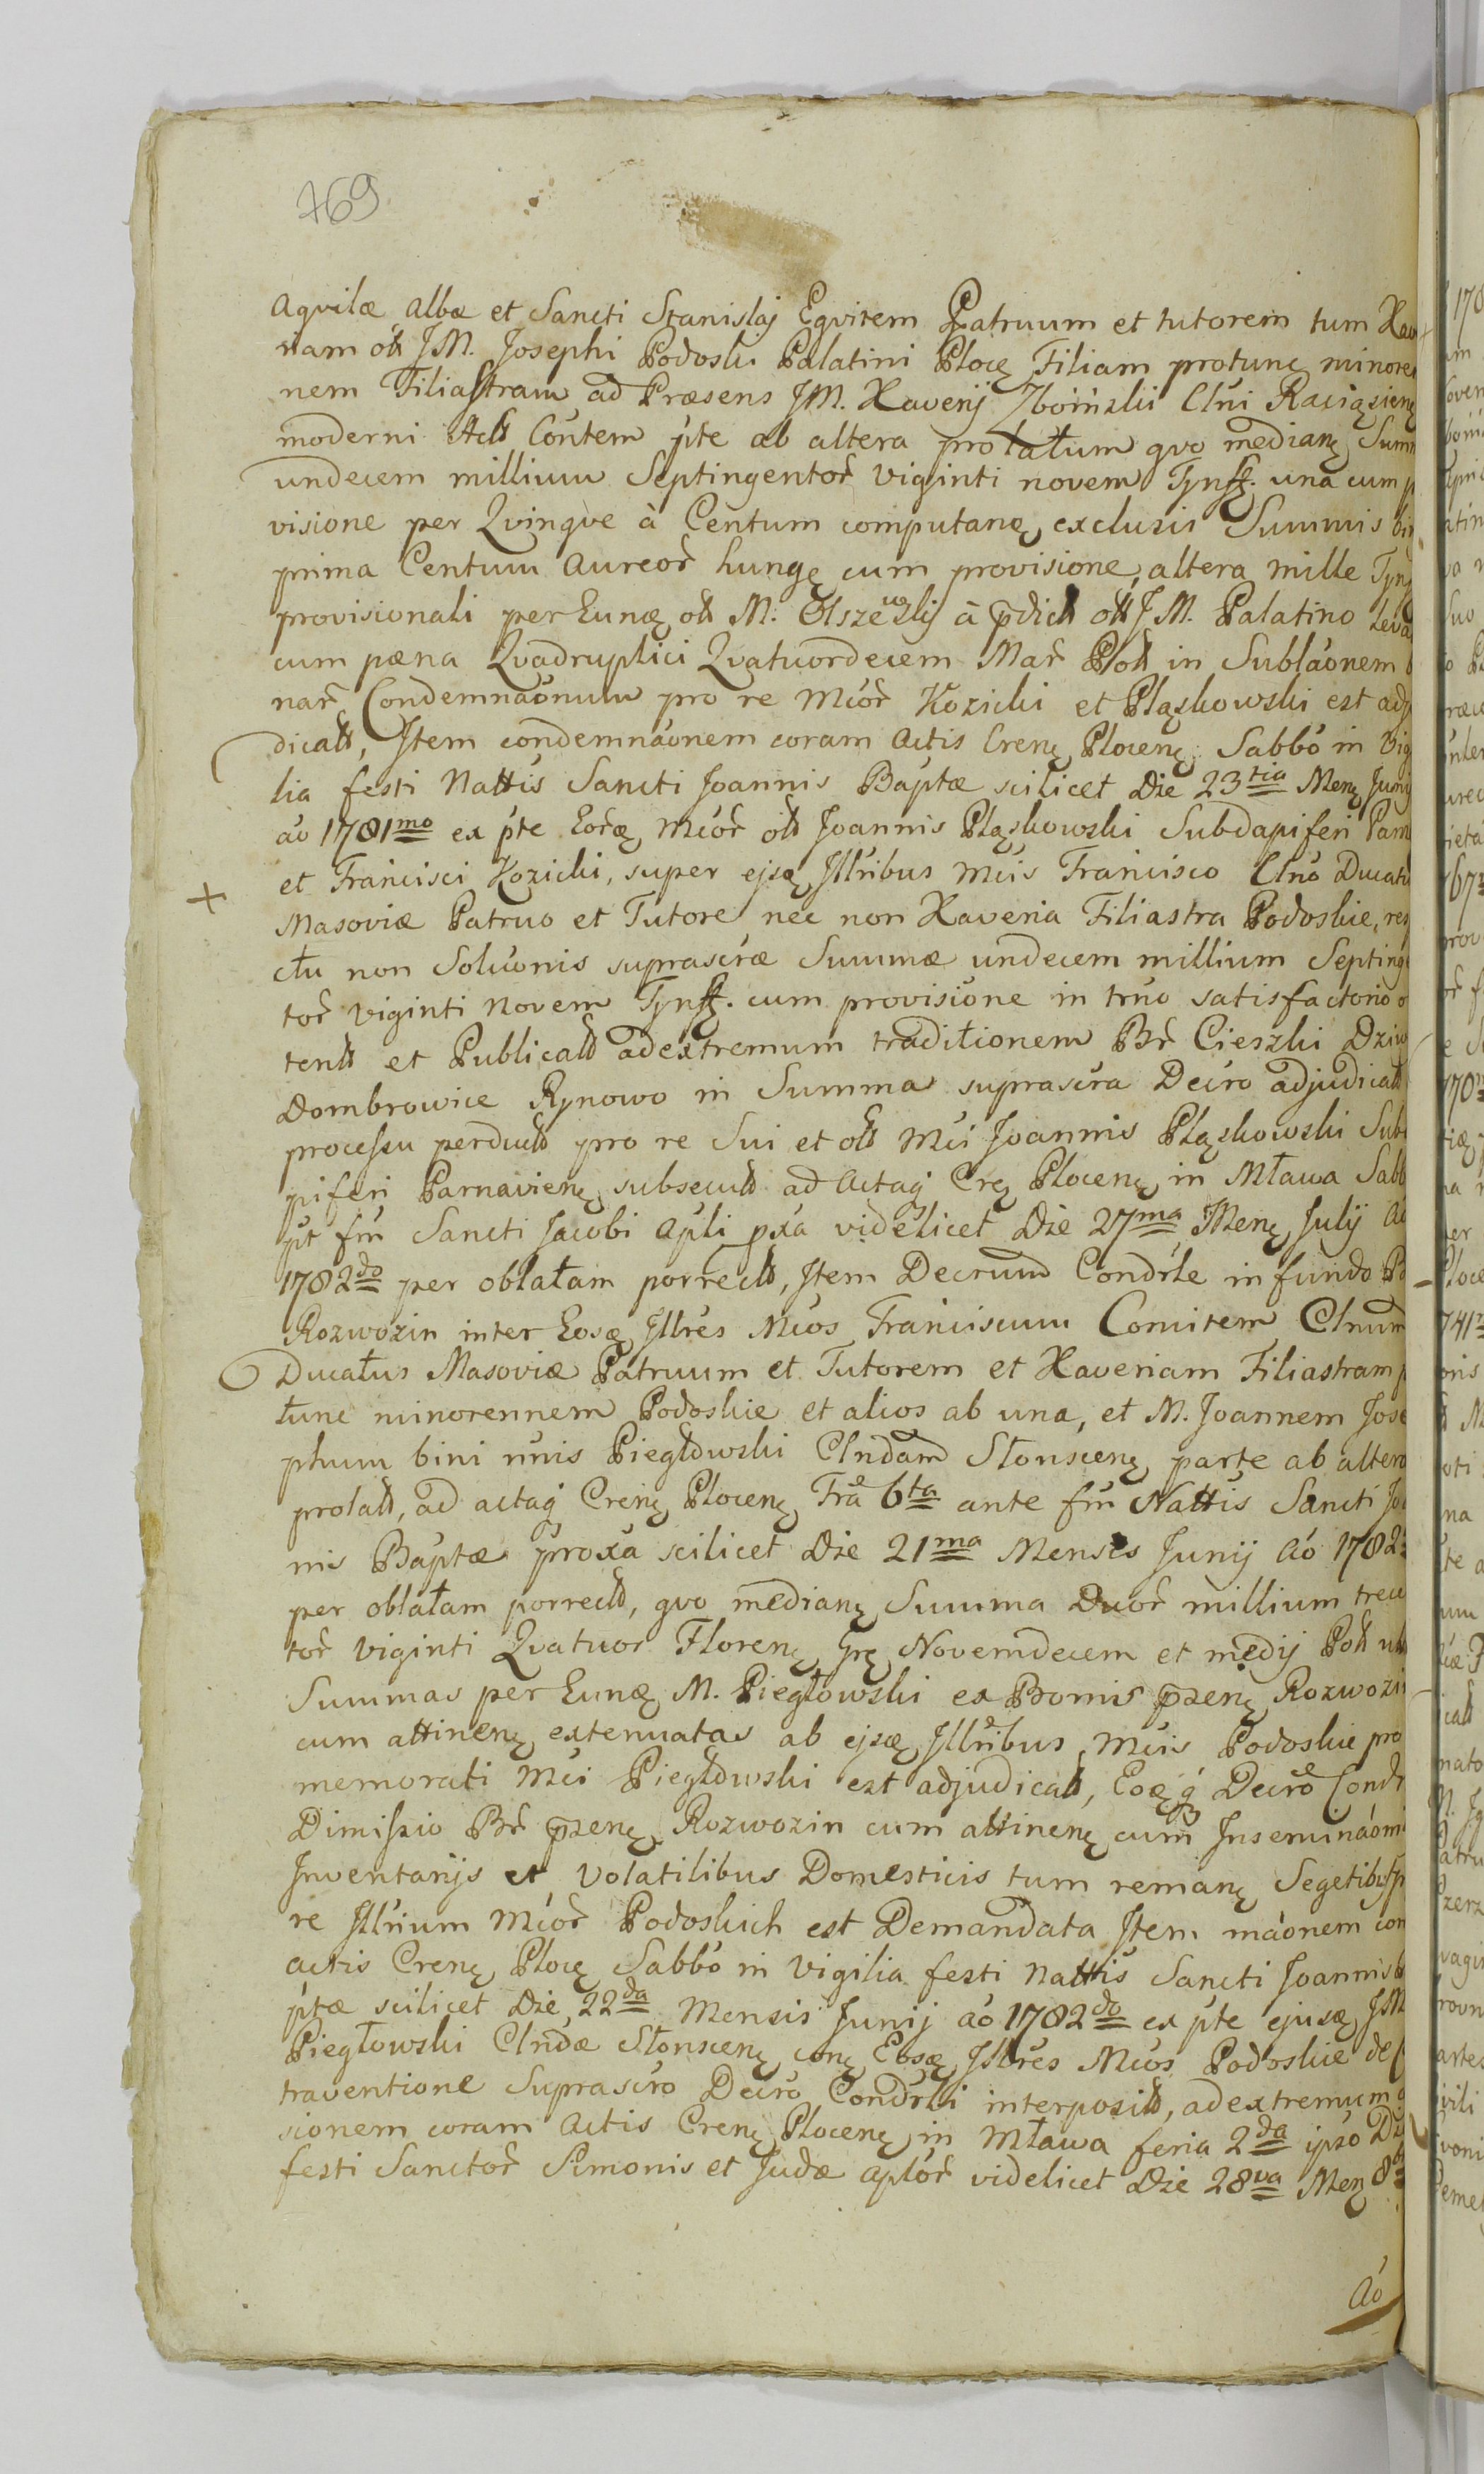 769
Aqvilæ Albæ et Sancti Stanislaj Eqvitem Patruum et tutorem tum Xav
nam olł JM. Josephi Podoski Palatini Plocę Filiam protunc minoren
nem Filiastram ad Præsens JM. Xaverij Zboinski Clni Raciążienę
moderni Actł Contem pte ab altera prolatum qvo medianę Sum
undecem millium Septingentor̃ viginti novem Tynff. una cum p
visione per Qvinqve à Centum computanę, exclusis Summis bi
prima Centum Aureor̃ hungę cum provisione, altera mille Tyn
provisionali per Eunę olł M. Olszewskij à p̃dictł olł JM. Palatino leva
cum pæna Qvadruplici Qvatuordecem Mar̃ Połł in Sublaónem
nar̃ Condemnaónum pro re Mcór̃ Kozicki et Pląskowski est adj
dicatł, Item condemnaónem coram Actis Crenę Plocenę Sabbó in Vig
lia festi Nattis Sancti Joannis Baptæ scilicet Die 23tia Menę Junij
aó 1781mo ex pte Eorę Mcór̃ olł Joannis Pląskowski Subdapiferi Parn
et Francisci Kozicki, super ejsę Illribus Mcis Francisco Clnó Ducatu
Masoviæ Patruo et Tutore nec non Xaveria Filiastra Podoskie, res
ctu non Solućonis suprascræ Summæ undecem millium Septing
tor̃ viginti novem Tynff. cum provisione in trńo satisfactorio o
tentł et Publicatł adextremum traditionem Br̃ Cieszki Dziw
Dombrowice Rynowo in Summa suprascra Decro adjudicatł
processu perductł pro re Sui et olł Mci Joannis Pląskowski Sub
piferi Parnavienę subsecutł ad Actaq Crę Plocenę in Mława Sabb
pt fm Sancti Jacobi Apli pxa videlicet Die 27ma Menę Julij Aó
1782do per oblatam porrectł, Item Decrum Condrle in fundo B
Rozwozin inter Eosę Illres Mcos Franciscum Comitem Clnum
Ducatus Masoviæ Patruum et Tutorem et Xaveriam Filiastram p
tunc minorennem Podoskie et alios ab una, et M. Joannem Jose
phum bini nnis Piegłowski Clndam Słonscenę parte ab altera
prolatł, ad actaq Crenę Plocenę Fra 6ta ante fm Nattis Sancti Jo
nis Baptæ proxa scilicet Die 21ma Mensis Junij Aó 1782
per oblatam porrectł, qvo medianę Summa Duor̃ millium trecen
tor̃ viginti Qvatuor Florenę Grę Novemdecem et medij Połł
Summas per Eunę M. Piegłowski ex Bonis p̃zenę Rozwozin
cum attinenę extenuatas ab ejsę Illribus Mcis Podoskie pro
memorati Mci Piegłowski est adjudicatł, Eoę q́ Decro Condr
Dimissio Br̃ p̃zenę Rozwozin cum attinenę cum Inseminaómi
Inventarijs et Volatilibus Domesticis tum remanę Segetibus p
re Illrium Mcór̃ Podoskich est Demandata Item maónem con
actis Crenę Plocę Sabbó in vigilia festi Nattis Sancti Joannis
ptæ scilicet Die 22da Mensis Junij aó 1782do ex pte ejusę JM
Piegłowski Clndæ Słonscenę conę Eosę Illres Mcos Podoskie de
traventione Suprascro Decro Condrli interpositł, adextremum
sionem coram Actis Crenę Plocenę in Mława feria 2da ipso Di
festi Sanctor̃ Simonis et Judæ Aplór̃ videlicet Die 28va Menę 8b
Aó